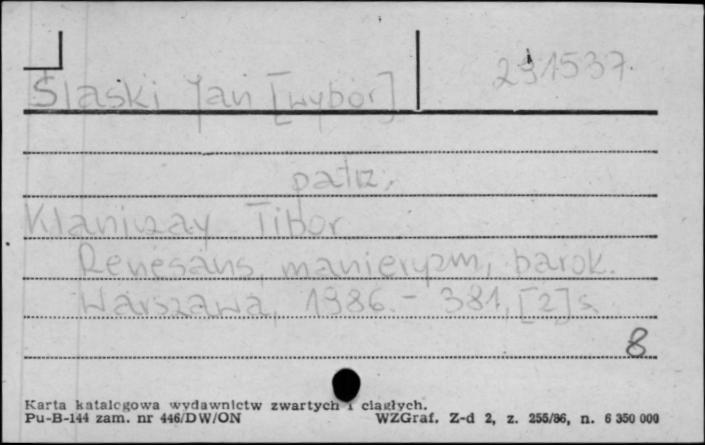 Ślaski Jan [wybór] 291537.
patrz,
Klaniczay Tibor
Renesans, manieryzm, barok.
Warszawa, 1986. - 381, [2] s.
8
Karta katalogowa wydawnictw zwartych i ciągłych.
Pu-B-144 zam. nr 446/DW/ON WZGraf. Z-d 2, z. 255/86, n. 6 350 000